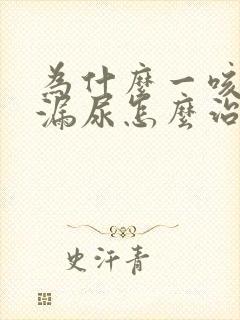 为什麼一咳
漏尿怎麼治
史汗青